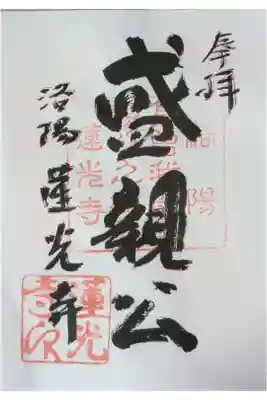 奉拝
盛親公
洛陽 蓮光寺
陽
蓮光寺
蓮光
寺印